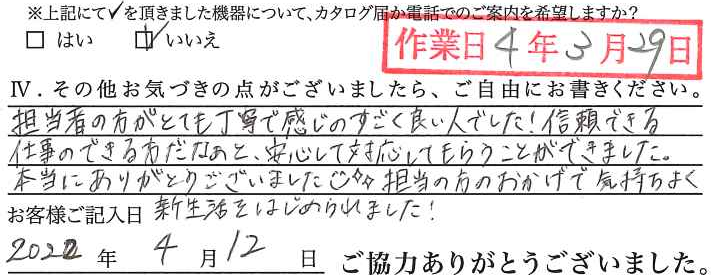 ※上記にて✓を頂きました機器について、カタログ届か電話でのご案内を希望しますか？
□ はい ☑ いいえ
作業日 4年3月29日
Ⅳ．その他お気づきの点がございましたら、ご自由にお書きください。
担当者の方がとても丁寧で感じのすごく良い人でした！信頼できる
仕事のできる方だなぁと、安心して対応してもらうことができました。
本当にありがとうございました 担当の方のおかげで気持ちよく
新生活をはじめられました！
お客様ご記入日
2022年 4月12日 ご協力ありがとうございました。